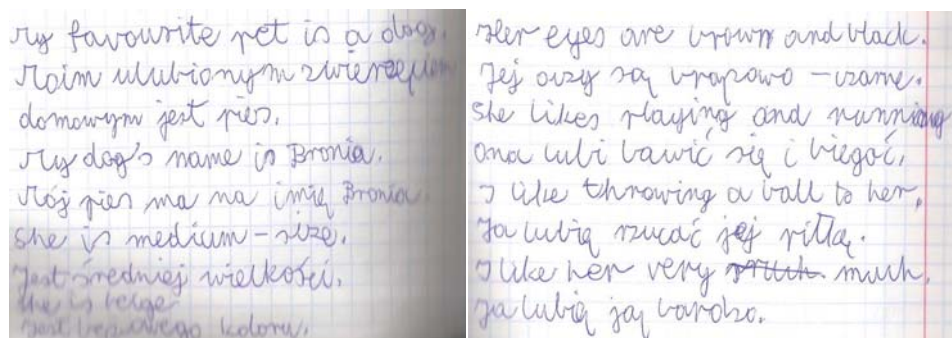 My favourite pet is a dog.
Moim ulubionym zwierzęciem
domowym jest pies.
My dog's name is Bronia.
Mój pies ma na imię Bronia.
She is medium-size.
Jest średniej wielkości.
She is beige
Jest beżowego koloru.
Her eyes are brown and black.
Jej oczy są brązowo-czarne.
She likes playing and running
Ona lubi bawić się i biegać.
I like throwing a ball to her.
Ja lubię rzucać jej piłkę.
I like her very much. much.
Ja lubię ją bardzo.